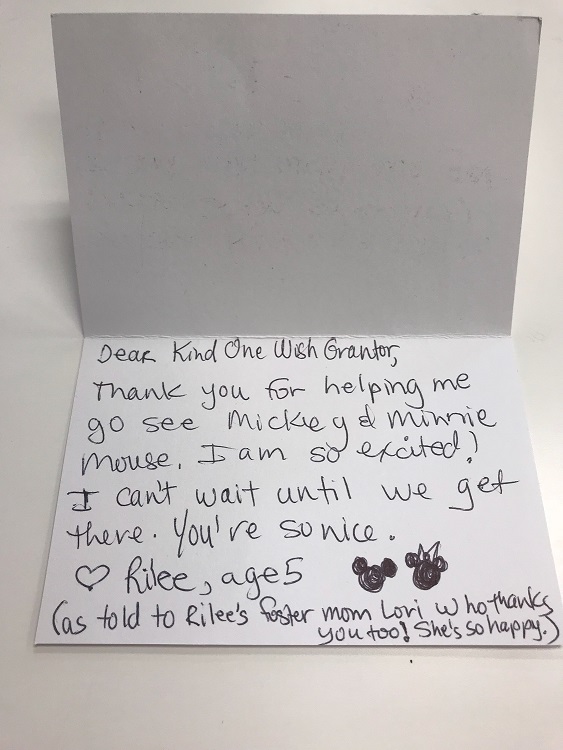 Dear Kind One Wish Grantor,
Thank you for helping me
go see Mickey & Minnie
Mouse. I am so excited!
I can't wait until we get
there. You're so nice.
♡ Rilee, age 5
(as told to Rilee's foster mom Lori who thanks
you too! She's so happy.)